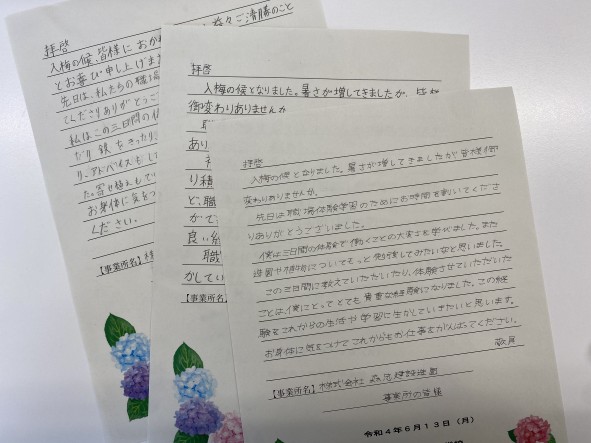 拝啓
入梅の候、皆様におか
益々ご清勝のこと
とお喜び申し上げま
先日は、私たちの職場
てくださりありがとうござ
私はこの三日間の
り、アドバイスもし
お身体に気をつ
ください。
【事業所名】
拝啓
入梅の候となりました。暑さが増してきましたが、皆様
御変わりありませんか
あり
り積
と、職
がで
良い
職
かしてい
【事業所名】
拝啓
入梅の候となりました。暑さが増してきましたが皆様御
変わりありませんか。
先日は職場体験学習のためにお時間を割いてくださ
りありがとうございました。
僕は三日間の体験で働くことの大変さを学びました。また
についてもっと勉強してみたいなと思いました。
この三日間に教えていただいたり、体験させていただいた
ことは、僕にとってとても貴重な経験になりました。この経
験をこれからの生活や学習に生かしていきたいと思います。
お身体に気をつけてこれからもお仕事をがんばってください。
敬具
【事業所名】株式会社
事業所の皆様
令和4年6月13日(月)